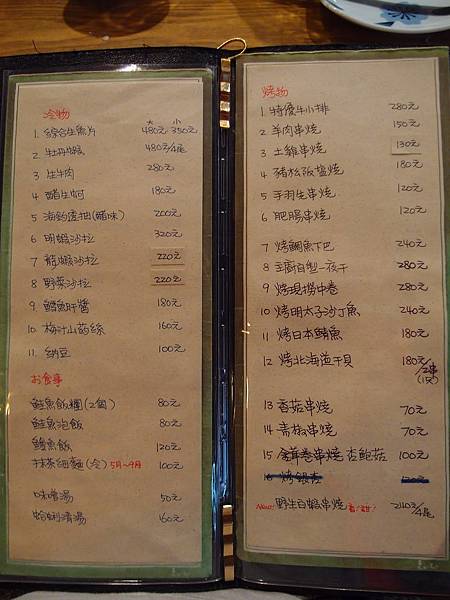 冷物
大 小
1. 綜合生魚片 480元 350元
2. 牡丹蝦 480元/4尾
3. 生牛肉 280元
4. 醋生蚵 180元
5. (醋味) 200元
6. 明蝦沙拉 320元
7. 龍蝦沙拉 220元
8. 野菜沙拉 220元
9. 鱈魚肝醬 180元
10. 梅汁山葯絲 160元
11. 納豆 100元
お食事
鮭魚飯糰(2個) 80元
鮭魚泡飯 80元
鱈魚飯 120元
抹茶細麵(冷) 5月~9月 100元
味噌湯 50元
蛤蜊清湯 60元
烤物
1. 特優牛小排 280元
2. 羊肉串燒 150元
3. 土雞串燒 130元
4. 豬松阪塩燒 180元
5. 手羽先串燒 120元
6. 肥腸串燒 120元
7. 烤鯛魚下巴 240元
8. 主廚自製一夜干 280元
9. 燒現撈中卷 280元
10. 烤明太子沙丁魚 240元
11. 烤日本鯖魚 180元
12 烤北海道干貝 180元/2串
13 香菇串燒 70元
14 青椒串燒 70元
15 串燒 杏鮑菇 100元
16 烤銀杏 120元
New! 野生白蝦串燒 240元/4尾